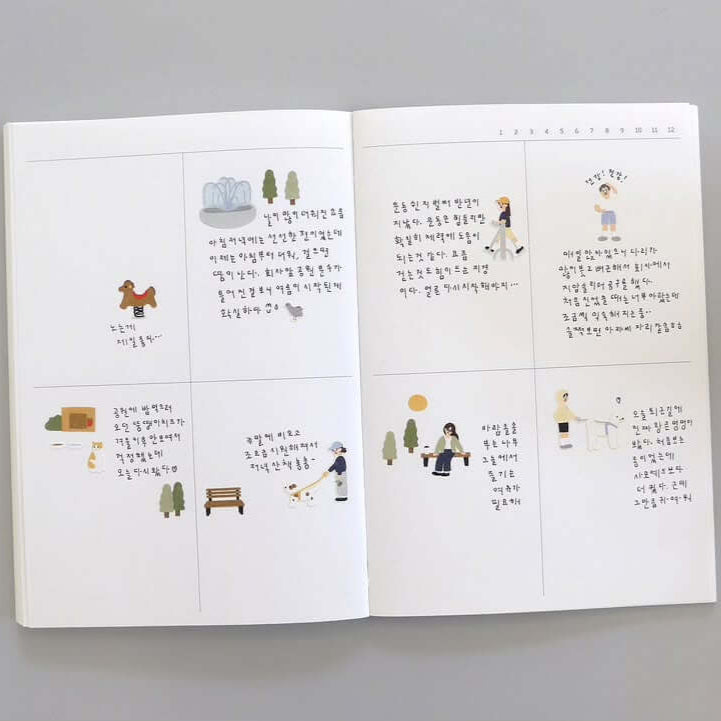 노는게
제일 좋다...
날이 많이 더워진 요즘
아침 저녁에는 선선한 편이었는데
이제는 아침부터 더워, 걸으면
땀이 난다. 회사앞 공원 분수가
틀어진걸 보니 여름이 시작된게
확실하다
공원에 밥 먹으러
오던 뚱땡이치즈가
며칠 안보여서
걱정했는데
오늘 다시 왔다
주말에 비오고
조금 시원해져서
저녁 산책 놀흠~
1 2 3 4 5 6 7 8 9 10 11 12
운동 쉰지 벌써 반년이
지났다. 운동은 힘들지만
확실히 체력에 도움이
되는것 같다. 요즘
걷는것도 힘이드는 지경
이다. 얼른 다시 시작해야지...
건강! 건강!
매일 앉아있으니 다리가
많이 붓고 뻐근해서 회사에서
지압슬리퍼 공구를 했다.
처음 신었을 때는 너무 아팠는데
조금씩 익숙해지는중..
슬쩍보면 아저씨 다리 같음
바람 솔솔
부는 나무
그늘에서
즐기는
여유가
필요해
오늘 퇴근길에
진짜 왕큰 멍멍이
봤다. 처음보는
종이었는데
사모예드보다
더 컸다. 근데
그만큼 귀·여·워